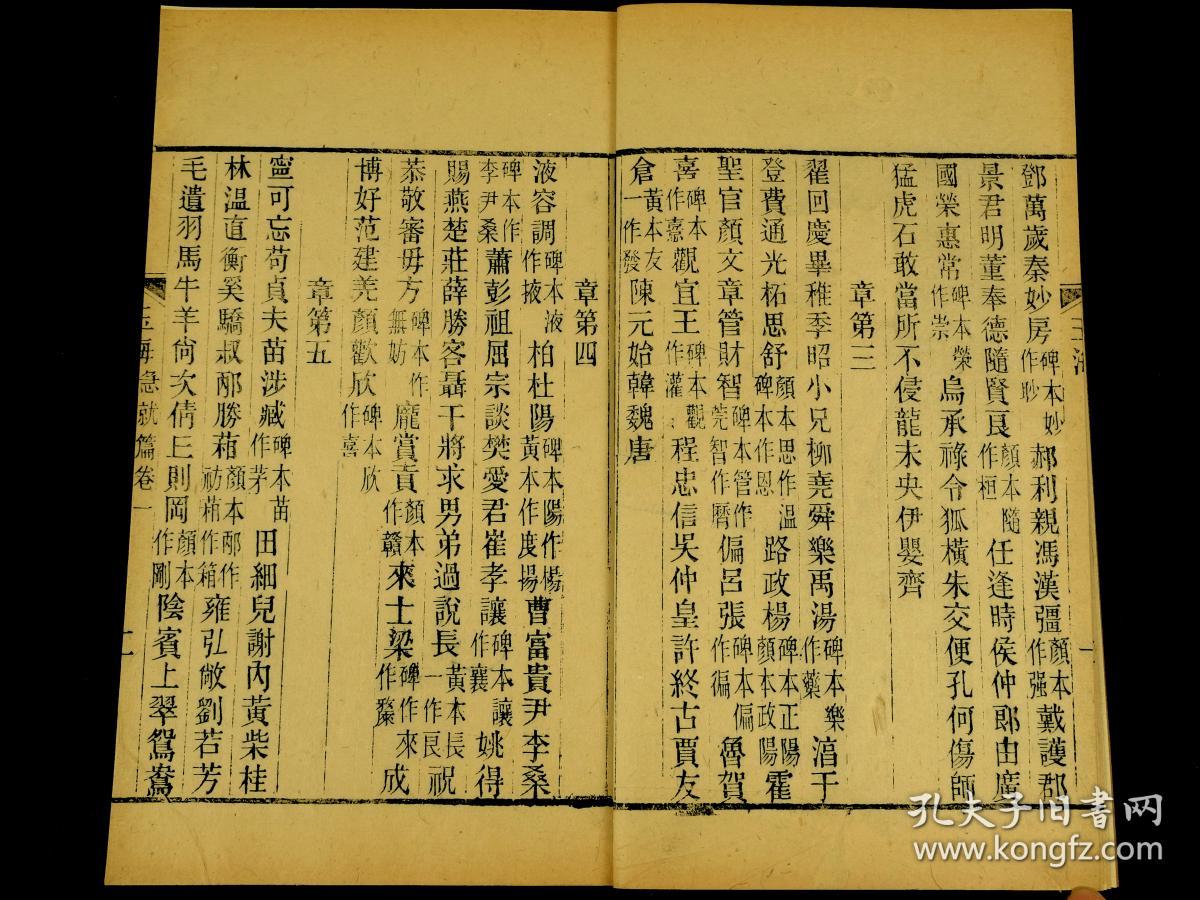 鄧萬歲秦妙房碑本妙作眇郝利親馮漢彊顏本作强戴護郡
景君明董奉德隨賢良顏本隨作桓任逢時侯仲郎由廣
國榮惠常碑本榮作崇烏承祿令狐橫朱交便孔何傷師
猛虎石敢當所不侵龍未央伊嬰齊
章第三
翟回慶畢稚季昭小兄柳堯舜樂禹湯碑本樂作藥淳于
登費通光柘思舒顏本思作溫碑本作恩路政楊碑本正陽顏本政陽霍
聖官顏文章管財智碑本管作莞智作曆偏呂張碑本偏作徧魯賀
喜碑本作憙觀宜王碑本觀作灌程忠信吳仲皇許終古賈友
倉黃本友一作發陳元始韓魏唐
章第四
液容調碑本液作掖柏杜陽碑本陽作楊黃本作度揚曹富貴尹李桑
碑本作李尹桑蕭彭祖屈宗談樊愛君崔孝讓碑本讓作襄姚得
賜燕楚莊薛勝客聶干將求男弟過說長黃本長一作良祝
恭敬審毋方碑本作無妨龐賞贛顏本作贛來士梁碑作來作䅘成
博好范建羌顏歡欣碑本欣作喜
章第五
寧可忘苟貞夫苗涉臧碑本苗作茅田細兒謝內黃柴桂
林溫直衡奚驕叔邴勝葙顏本邴作祊葙作箱雍弘敞劉若芳
毛遺羽馬牛羊尙次倩丘則岡顏本作剛陰賓上翠鴛鴦
玉海急就篇卷一
二
玉海
一
孔夫子旧书网
www.kongfz.com